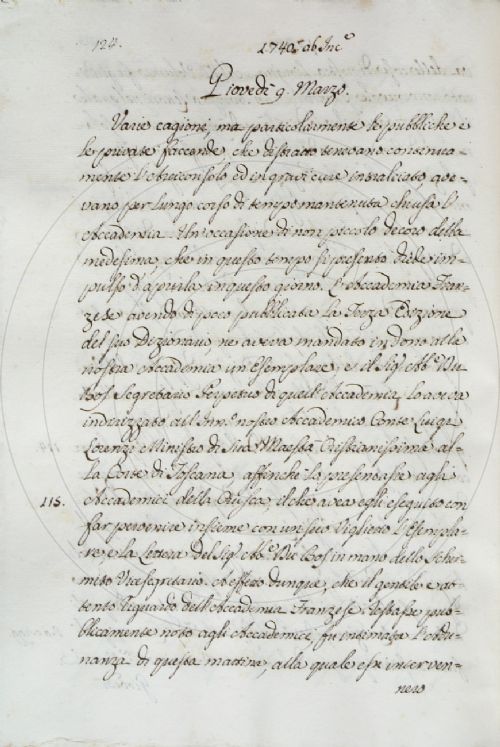 124. 1740. ab Inc.e
Giovedì 9. Marzo.
Varie cagioni, ma particolarmente le pubbliche e
le private faccende, che distratto tenevano continua-
mente l'Arciconsolo ed in gravi cure intralciato, ave-
vano per lungo corso di tempo mantenuta chiusa l'
Accademia. Un'occasione di non piccolo decoro della
medesima, che in questo tempo si presentò diede im-
pulso d'aprirla in questo giorno. L'Accademia Fran-
zese avendo di poco pubblicata la Terza Edizione
del suo Dizionario, ne aveva mandato in dono alla
nostra Accademia un Esemplare, e il Sig.e Ab.e Du
Bos Segretario Perpetuo di quell'Accademia, lo aveva
indirizzato all'Inn.o nostro Accademico Conte Luigi
Lorenzi Ministro di Sua Maestà Cristianissima al-
la Corte di Toscana, affinchè lo presentasse agli
115. Accademici della Crusca, il che avea egli eseguito con
far pervenire insieme con un suo Viglietto l'Esempla-
re, e la Lettera del Sig.e Ab.e Du Bos in mano dello Scher-
mito Vicesegretario. A effetto dunque, che il gentile e at-
tento riguardo dell'Accademia Franzese restasse pub-
blicamente noto agli Accademici, fu intimata l'Adu-
nanza di questa mattina, alla quale essi interven-
nero